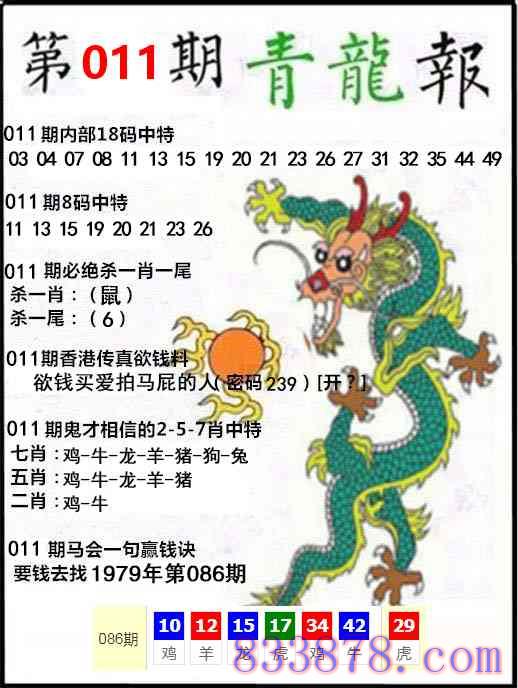 第011期青龍報
011期内部18码中特
03 04 07 08 11 13 15 19 20 21 23 26 27 31 32 35 44 49
011期8码中特
11 13 15 19 20 21 23 26
011 期必绝杀一肖一尾
杀一肖：（鼠）
杀一尾：（6）
011期香港传真欲钱料
欲钱买爱拍马屁的人（密码239）[开？]
011期鬼才相信的2-5-7肖中特
七肖：鸡-牛-龙-羊-猪-狗-兔
五肖：鸡-牛-龙-羊-猪
二肖：鸡-牛
011 期马会一句赢钱诀
要钱去找1979年第086期
086期 10 12 15 17 34 42 29
鸡 羊 龙 虎 鸡 牛 虎
833878.com